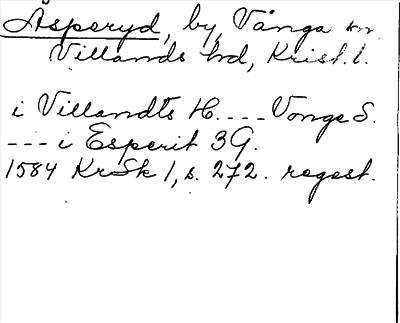 Åsperyd, by, Vånga sn
Villands hd, Krist. l.
i Villandts H. ... Vonge S.
--- i Esperit 3 G.
1584 KrSk 1, s. 272. regest.